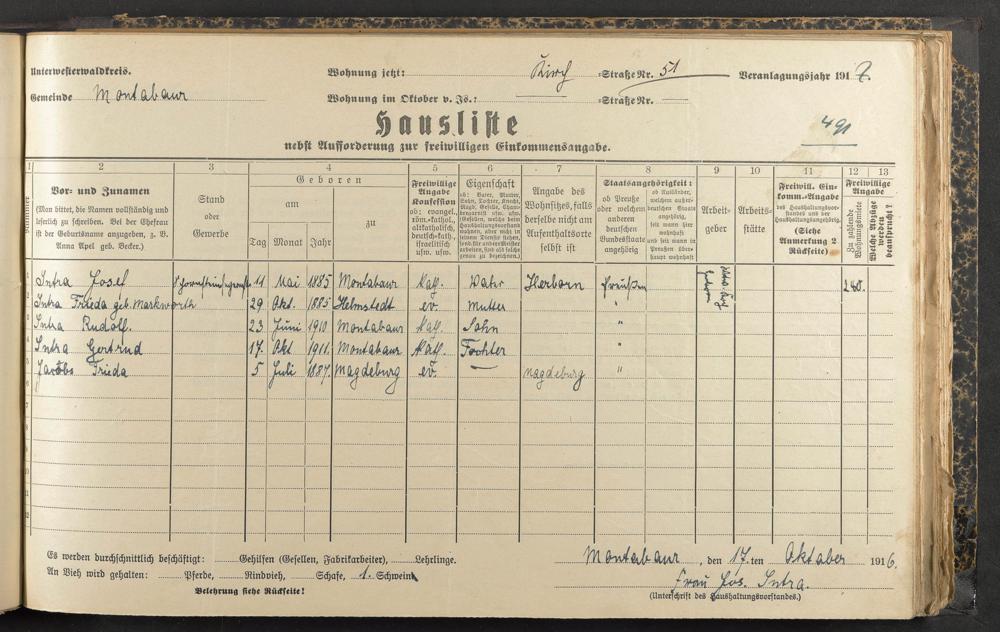 Unterwesterwaldkreis.
Wohnung jetzt: Kirch =Straße Nr. 51
Veranlagungsjahr 1917.
Gemeinde Montabaur
Wohnung im Oktober v. Js.: — =Straße Nr. —
491
Hausliste
nebst Aufforderung zur freiwilligen Einkommensangabe.
1 2 3 4 5 6 7 8 9 10 11 12 13
Nummer
Vor- und Zunamen
(Man bittet, die Namen vollständig und
leserlich zu schreiben. Bei der Ehefrau
ist der Geburtsname anzugeben, z. B.
Anna Apel geb. Becker.)
Stand
oder
Gewerbe
Geboren
am
zu
Tag Monat Jahr
Freiwillige
Angabe
Konfession
ob: evangel.,
röm.-kathol.,
altkatholisch,
deutsch-kath.,
israelitisch
usw. usw.
Eigenschaft
Angabe des
Wohnsitzes, falls
derselbe nicht am
Aufenthaltsorte
selbst ist
Staatsangehörigkeit:
ob Preuße
oder welchem
anderen
deutschen
Bundesstaate
angehörig
ob Ausländer,
welchem außer-
deutschen Staate
angehörig,
seit wann hier
wohnhaft
und seit wann in
Preußen über-
haupt wohnhaft
Arbeit-
geber
Arbeits-
stätte
Freiwill. Ein-
komm.-Angabe
des Haushaltungsvor-
standes und der
Haushaltungsangehörig.
(Siehe
Anmerkung 2
Rückseite)
Freiwillige
Angabe
Zu zahlende
Wohnungsmiete
Welche Abzüge
werden
beansprucht?
Intra Josef 11 Mai 1885 Montabaur Kath. Vater Herborn Preußen 240.
Intra Frieda geb. Markworth 29 Okt. 1885 Helmstedt ev. Mutter
Intra Rudolf. 23 Juni 1910 Montabaur Kath. Sohn "
Intra Gertrud 17. Okt 1911. Montabaur Kath. Tochter "
Jacobs Frieda 5 Juli 1887. Magdeburg ev. — Magdeburg "
Es werden durchschnittlich beschäftigt: Gehilfen (Gesellen, Fabrikarbeiter), Lehrlinge.
Montabaur, den 17.ten Oktober 1916.
An Vieh wird gehalten: Pferde, Rindvieh, Schafe, 1. Schwein
Frau Jos. Intra.
Belehrung siehe Rückseite!
(Unterschrift des Haushaltungsvorstandes.)